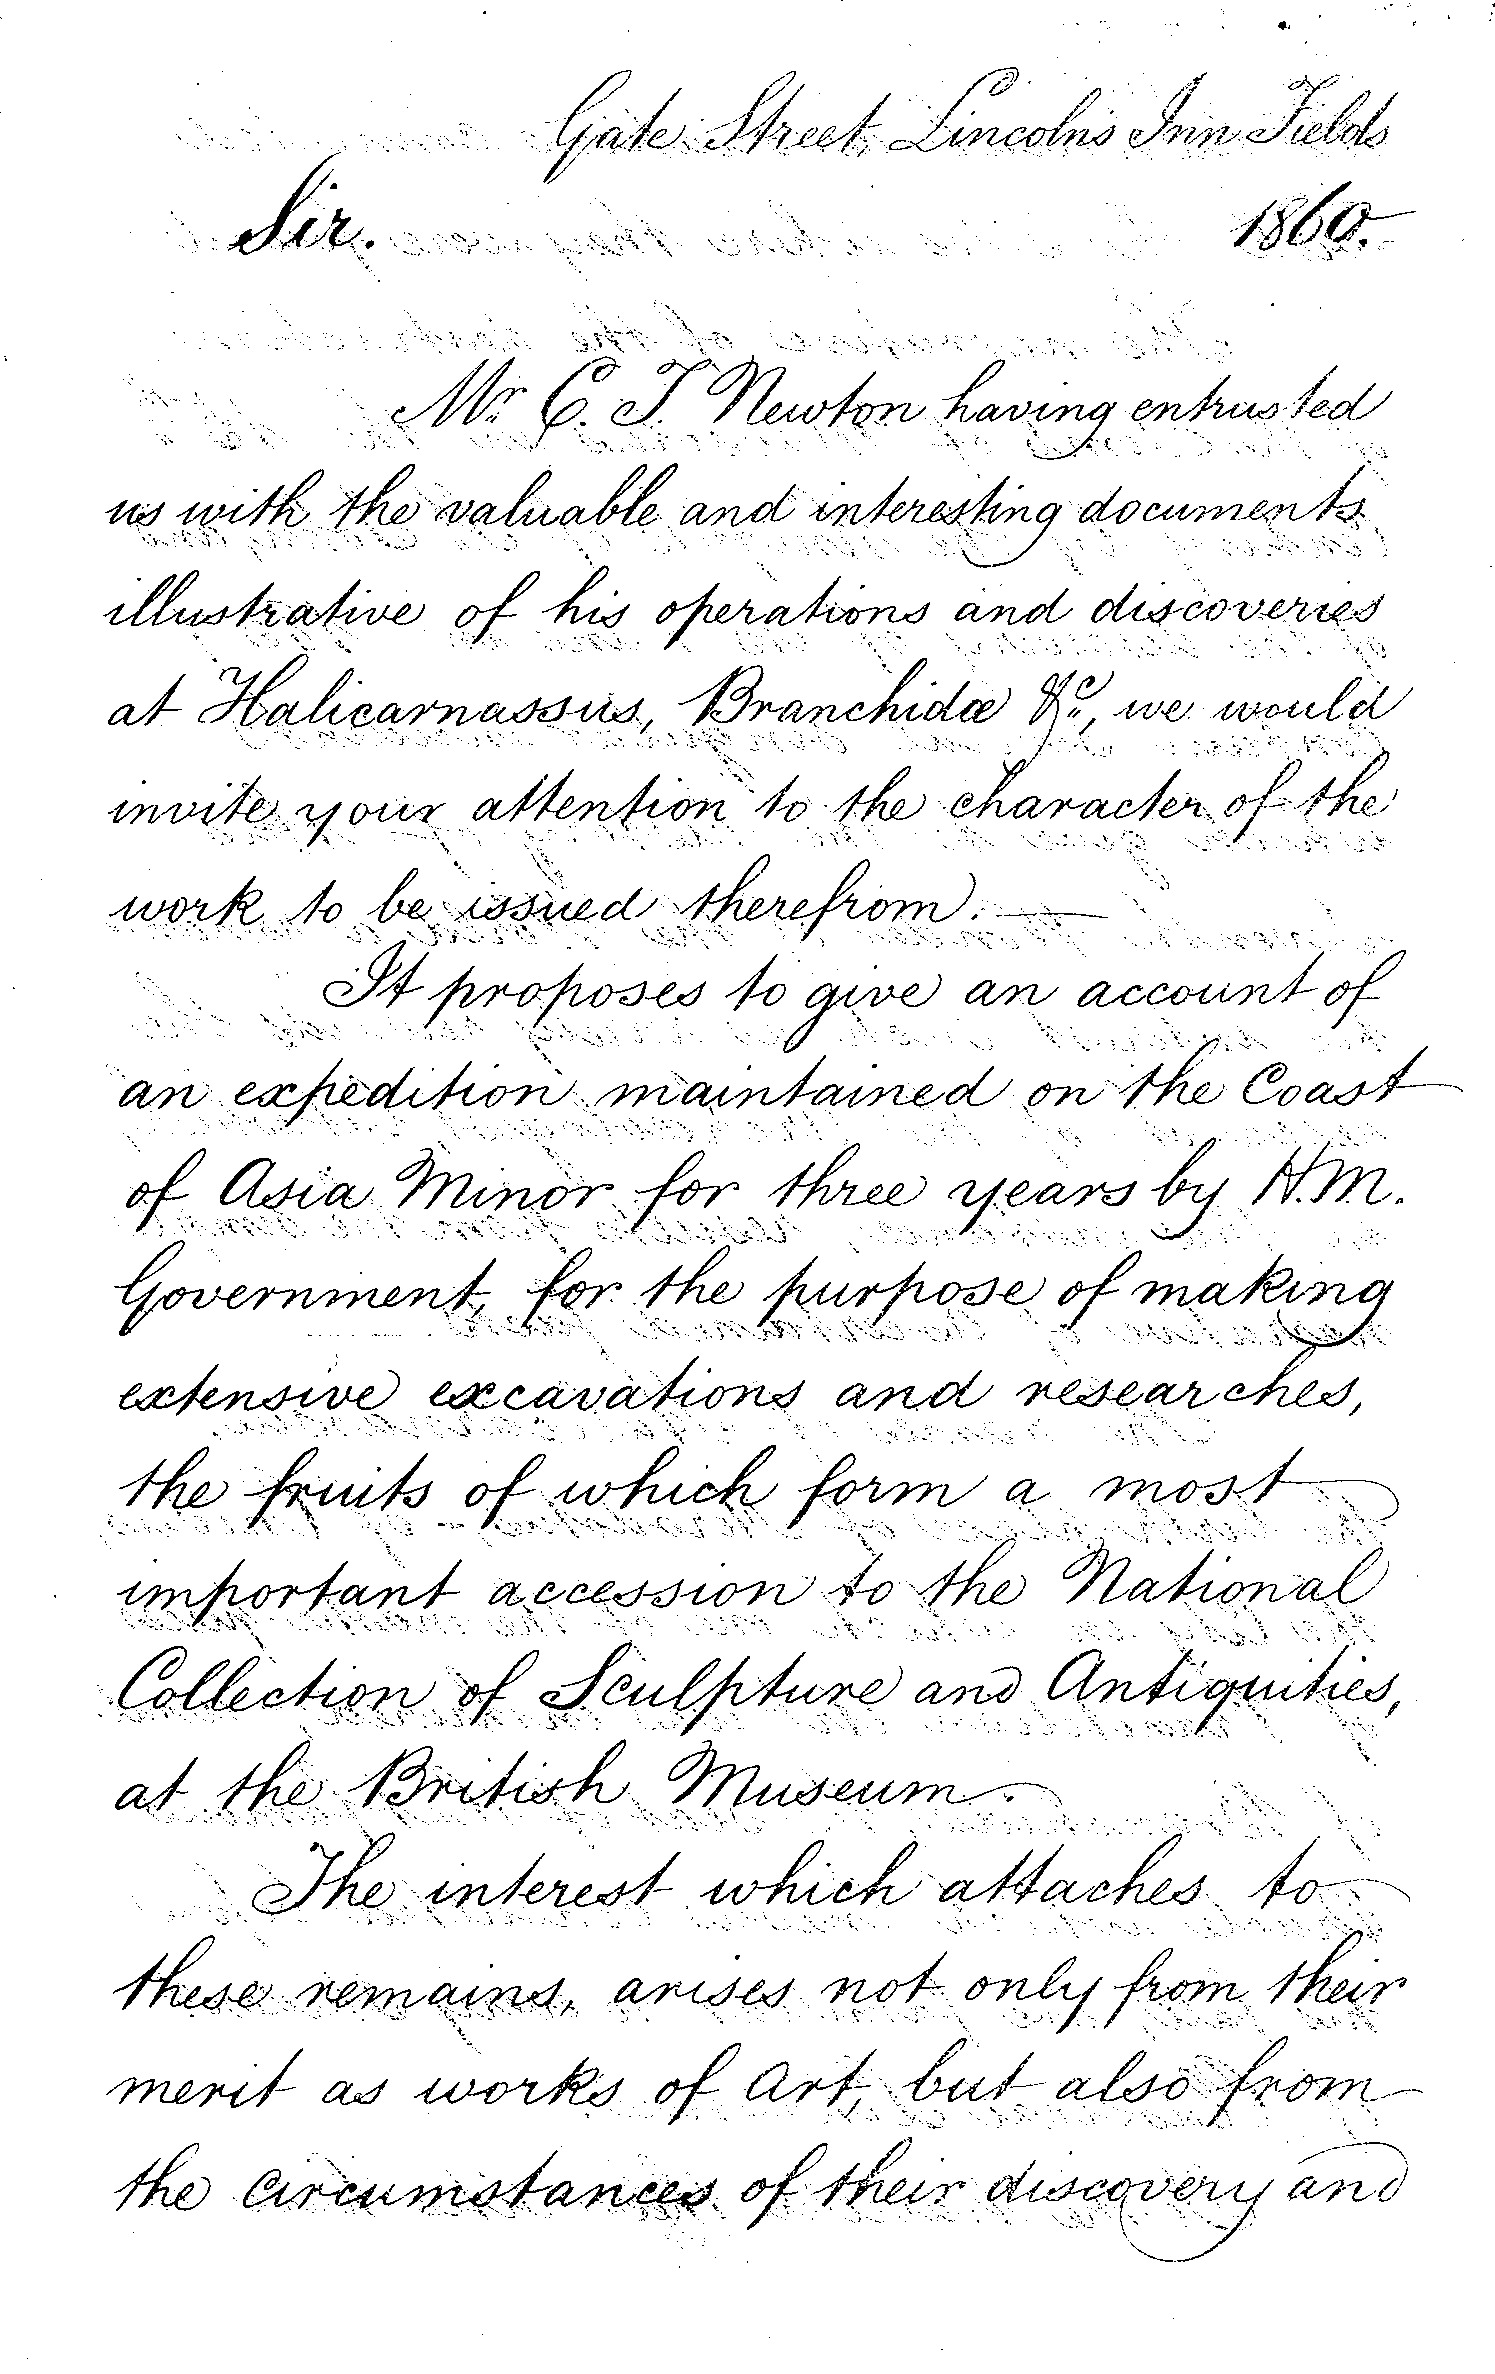 Gate Street, Lincoln's Inn Fields
Sir. 1860.
Mr C. T. Newton having entrusted
us with the valuable and interesting documents
illustrative of his operations and discoveries
at Halicarnassus, Branchidæ &c., we would
invite your attention to the character of the
work to be issued therefrom.
It proposes to give an account of
an expedition maintained on the Coast
of Asia Minor for three years by H.M.
Government, for the purpose of making
extensive excavations and researches,
the fruits of which form a most
important accession to the National
Collection of Sculpture and Antiquities,
at the British Museum.
The interest which attaches to
these remains, arises not only from their
merit as works of Art, but also from
the circumstances of their discovery and